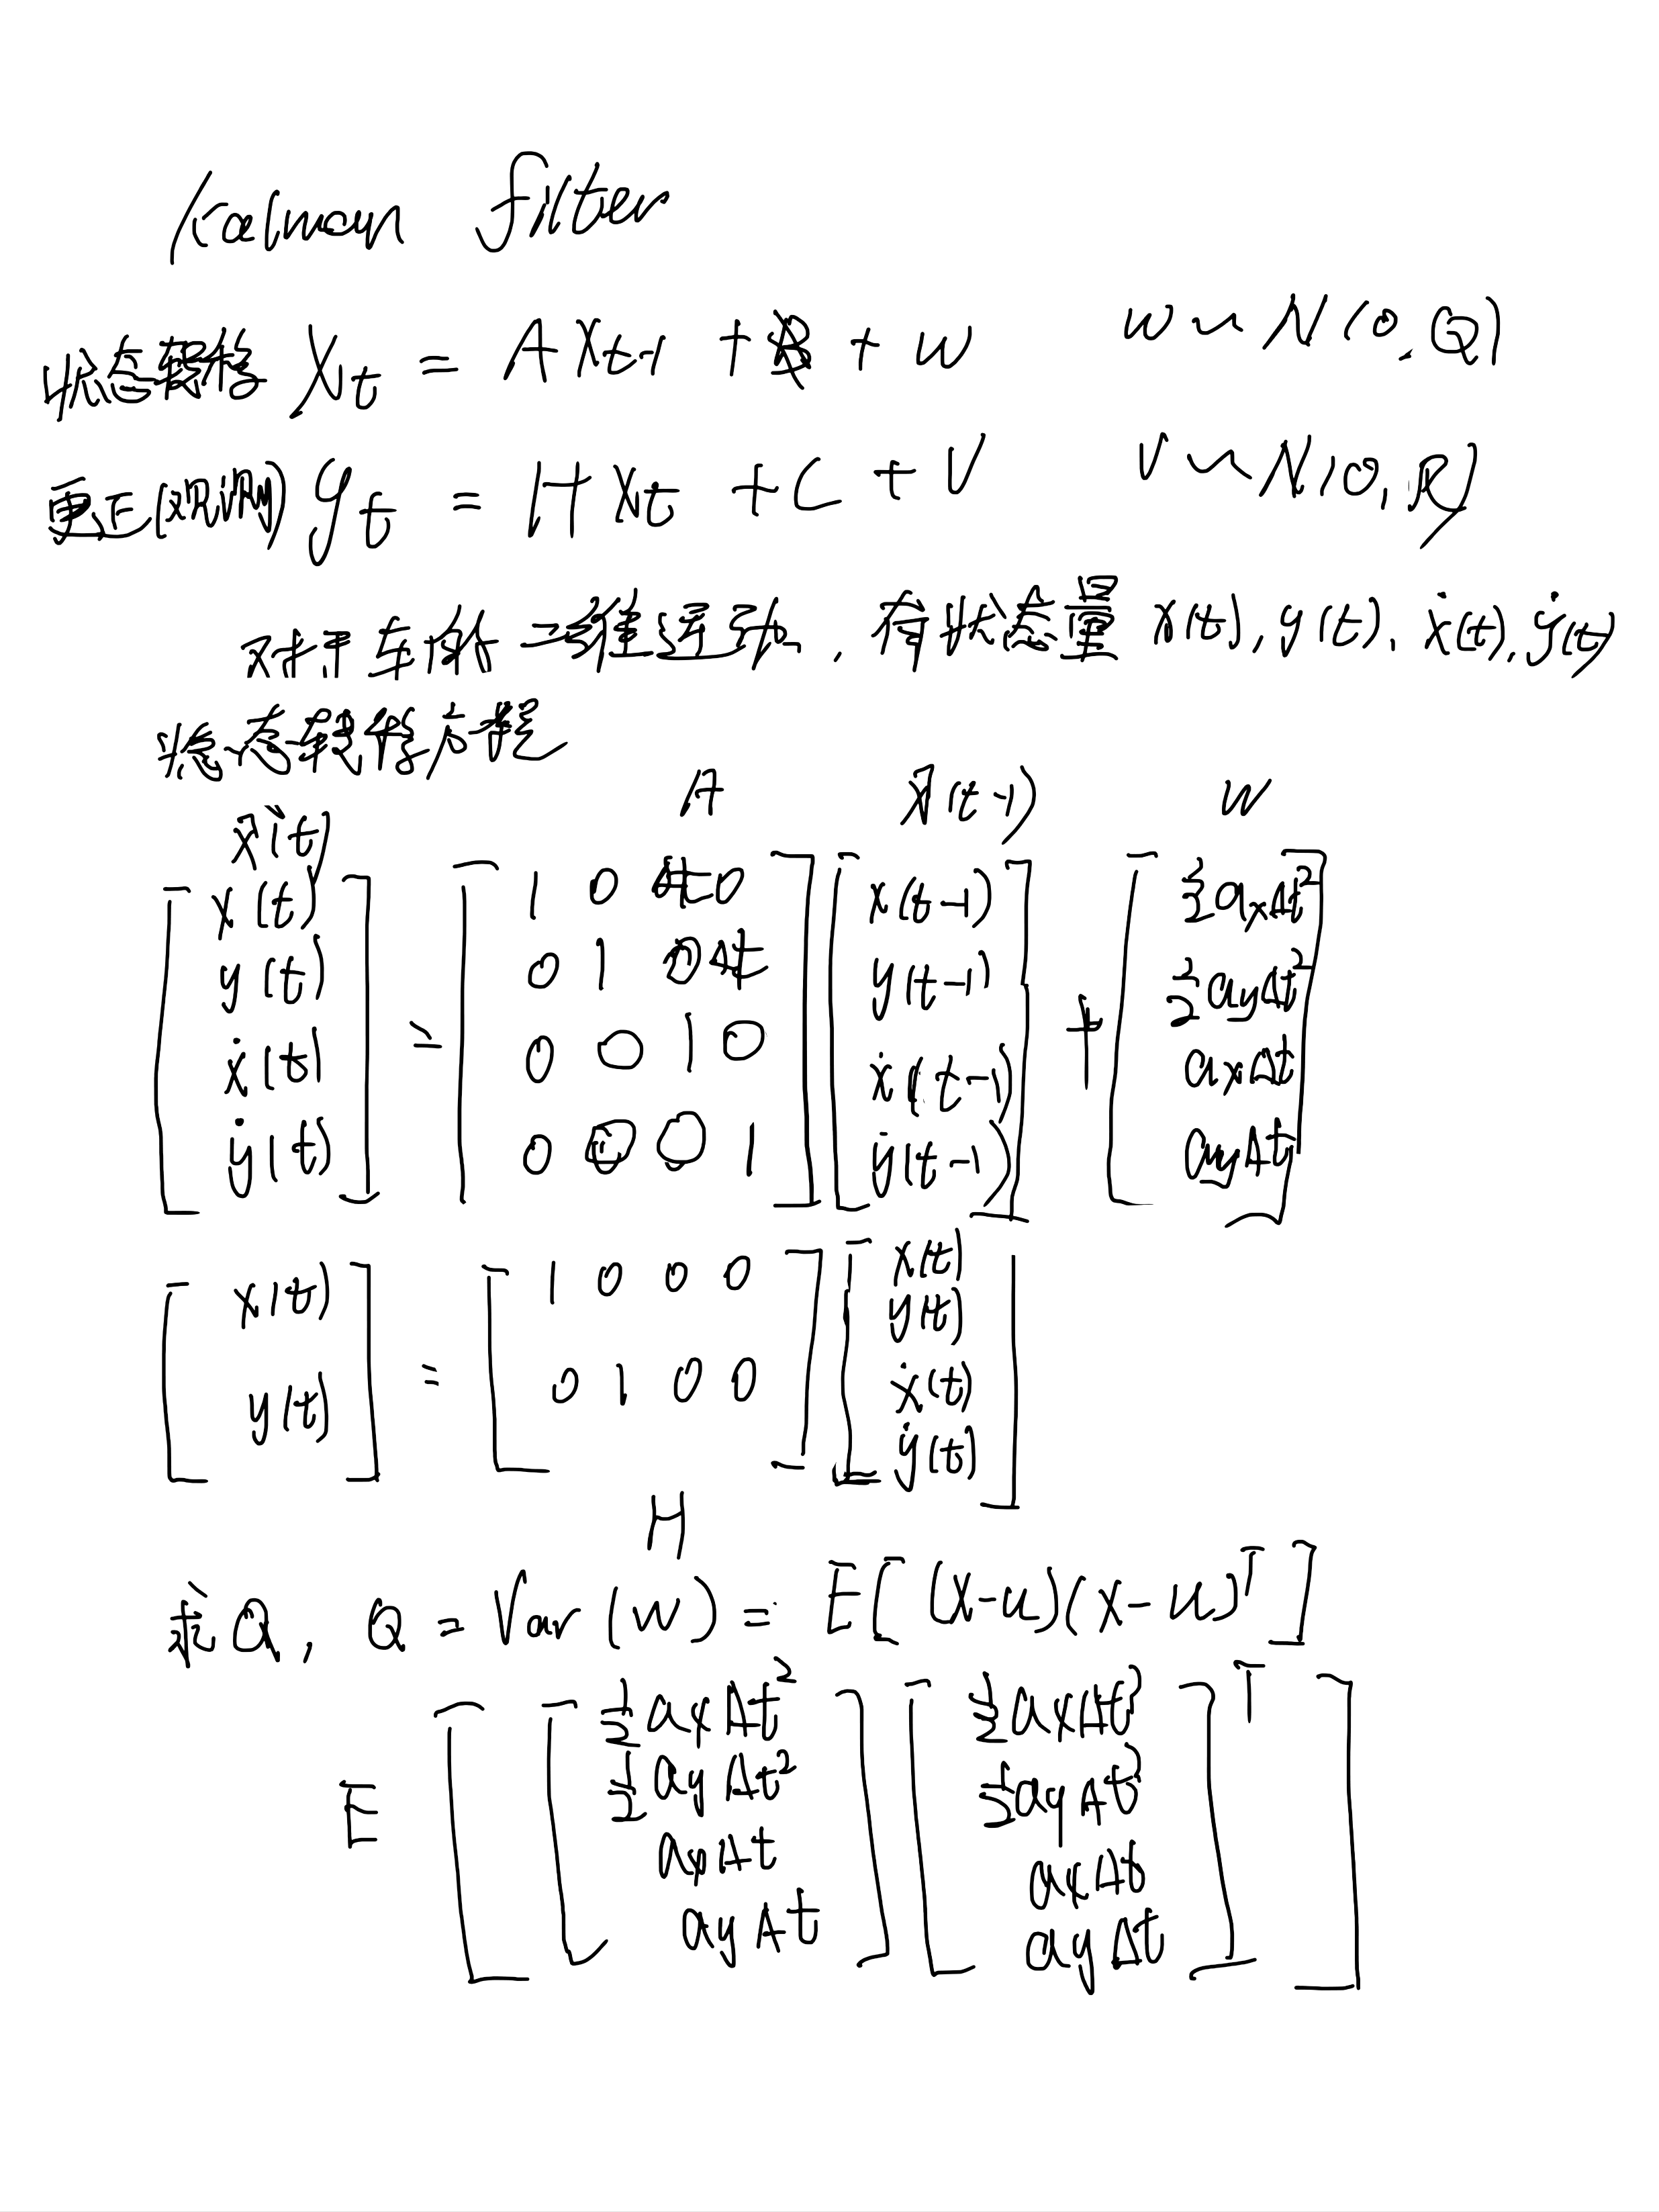 Kalman filter
状态转移 Xt = A Xt-1 + + w w ~ N(0, Q)
yt = H Xt + C + V V ~ N(0, R)
对于车辆 运动, 有状态量 x(t), y(t), ẋ(t), ẏ(t)
状态转移方程
X(t) A X(t-1) W
[x(t) y(t) ẋ(t) ẏ(t)] = [1 0 Δt 0
0 1 0 Δt
0 0 1 0
0 0 0 1] [x(t-1) y(t-1) ẋ(t-1) ẏ(t-1)] + [½axΔt² ½ayΔt² axΔt ayΔt]
[x(t) y(t)] = [1 0 0 0
0 1 0 0] [x(t) y(t) ẋ(t) ẏ(t)]
H
求Q, Q = Var(w) = E[(x-u)(x-u)ᵀ]
E[[½axΔt² ½ayΔt² axΔt ayΔt] [½axΔt² ½ayΔt² axΔt ayΔt]ᵀ]